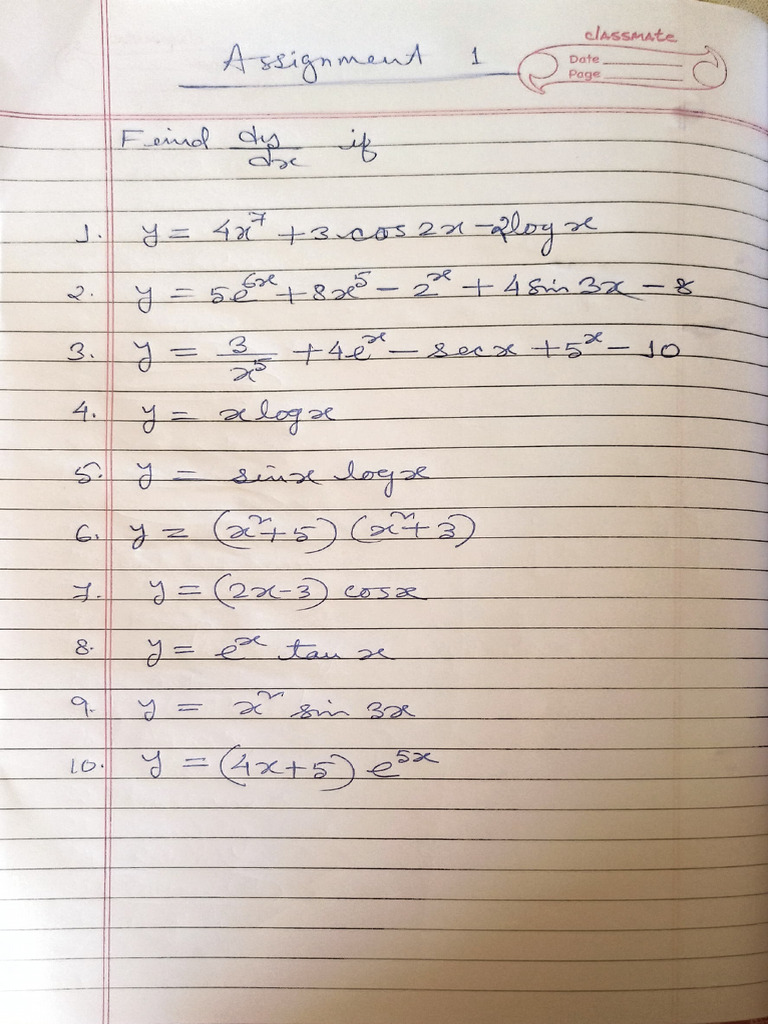 Assignment 1
classmate
Date
Page
Feind dy/dx if
1. y = 4x⁷ + 3 cos 2x - 2log x
2. y = 5e⁶ˣ + 8x⁵ - 2ˣ + 4 sin 3x - 8
3. y = 3/x⁵ + 4eˣ - sec x + 5ˣ - 10
4. y = x log x
5. y = sinx log x
6. y = (x²+5) (x²+3)
7. y = (2x-3) cosx
8. y = eˣ tan x
9. y = x² sin 3x
10. y = (4x+5) e⁵ˣ